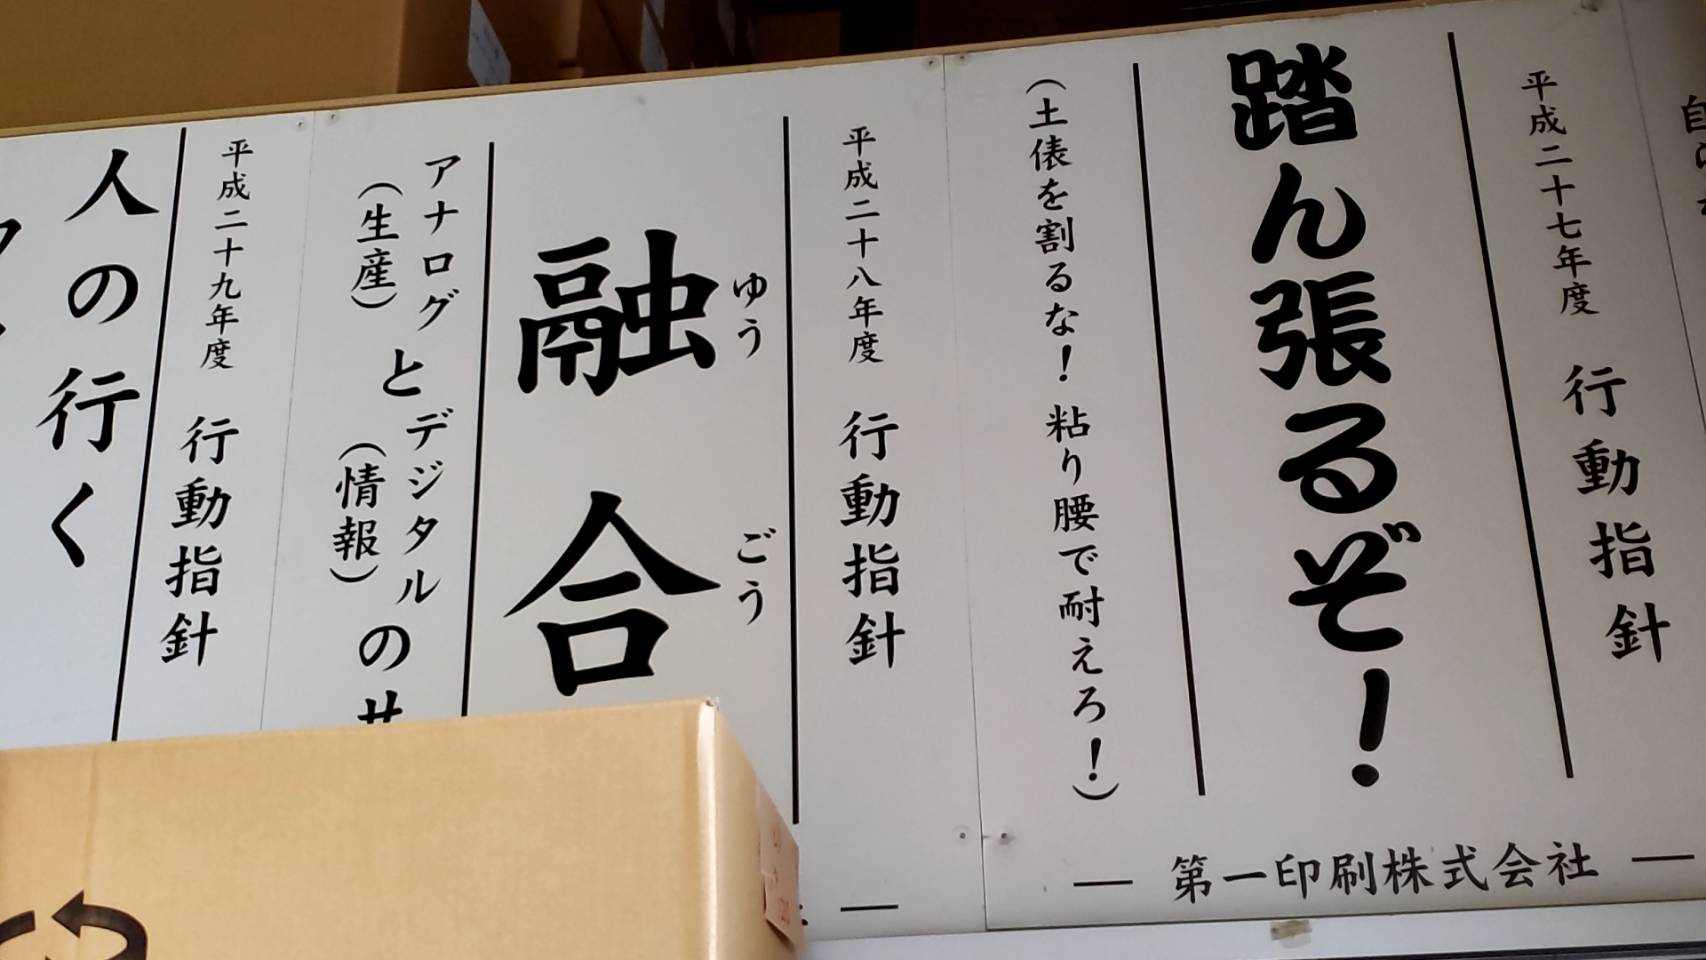 平成二十七年度 行動指針
踏ん張るぞ!
(土俵を割るな!粘り腰で耐えろ!)
― 第一印刷株式会社 ―
平成二十八年度 行動指針
ゆう ごう
融合
アナログとデジタルの
(生産) (情報)
平成二十九年度 行動指針
人の行く